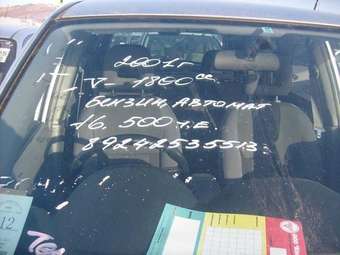 2001г
V-1800cc
БЕНЗИН, АВТОМАТ
16.500 т.Е.
89242535513
12